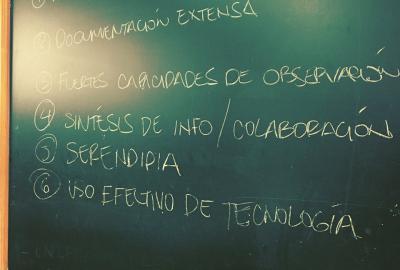 ② DOCUMENTACIÓN EXTENSA
③ FUERTES CAPACIDADES DE OBSERVACIÓN
④ SINTESIS DE INFO / COLABORACIÓN
⑤ SERENDIPIA
⑥ USO EFECTIVO DE TECNOLOGÍA